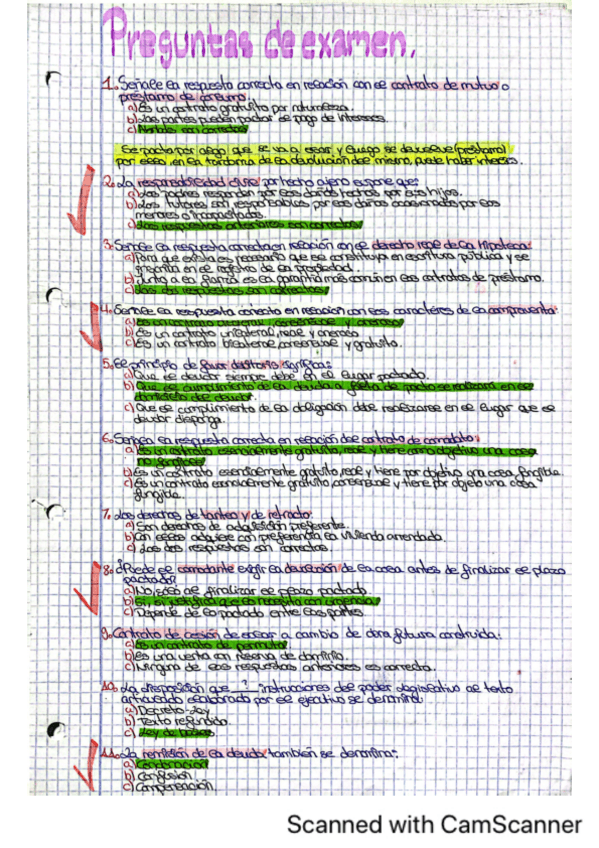 Preguntas de examen.
1. Señale la respuesta correcta en relación con el contrato de mutuo o
préstamo de consumo.
a) Es un contrato gratuito por naturaleza.
b) Las partes pueden pactar el pago de intereses.
c) son correctas
Se pacta por algo que se va a usar y luego se devuelve (préstamo)
por ello, en la tardanza de la devolución del mismo, puede haber interés.
2. La responsabilidad civil por hecho ajeno supone que:
a) Los padres responden por los daños hechos por sus hijos.
b) Los tutores son responsables por los daños ocasionados por los
menores o incapacitados.
c) Las respuestas anteriores son correctas
3. Señale la respuesta correcta en relación con el derecho real de la hipoteca:
a) Para que exista es necesario que se constituya en escritura pública y se
inscriba en el registro de la propiedad.
b) Junto a la fianza es la garantía más común en los contratos de préstamo.
c) Las dos respuestas son correctas
4. Señale la respuesta correcta en relación con los caracteres de la compraventa:
a) Es un contrato bilateral, consensual y oneroso
b) Es un contrato unilateral, real y oneroso
c) Es un contrato bilateral, consensual y gratuito.
5. El principio de favor debitoris significa:
a) Que el deudor siempre debe en el lugar pactado.
b) Que el cumplimiento de la deuda a falta de pacto se realizará en el
domicilio del deudor.
c) Que el cumplimiento de la obligación debe realizarse en el lugar que el
deudor disponga.
6. Señala la respuesta correcta en relación del contrato de comodato:
a) Es un contrato esencialmente gratuito, real y tiene como objetivo una cosa
no fungible
b) Es un contrato esencialmente gratuito, real y tiene por objetivo una cosa fungible.
c) Es un contrato esencialmente gratuito, consensual y tiene por objeto una cosa
fungible.
7. Los derechos de tanteo y de retracto:
a) Son derechos de adquisición preferente.
b) Con ellos adquiere con preferencia la vivienda arrendada.
c) Las dos respuestas son correctas.
8. ¿Puede el comodante exigir la devolución de la cosa antes de finalizar el plazo
pactado?
a) No, sólo al finalizar el plazo pactado
b) Sí, si justifica que la necesita con urgencia
c) Depende de lo pactado entre las partes
9. Contrato de cesión de solar a cambio de obra futura construida:
a) Es un contrato de permuta
b) Es una venta con reserva de dominio.
c) Ninguna de las respuestas anteriores es correcta.
10. La disposición que ? instrucciones del poder legislativo al texto
articulado elaborado por el ejecutivo se denomina:
a) Decreto-Ley
b) Texto refundido.
c) Ley de bases
11. La remisión de la deuda también se denomina:
a) Condonación
b) Confusión
c) Compensación.
Scanned with CamScanner